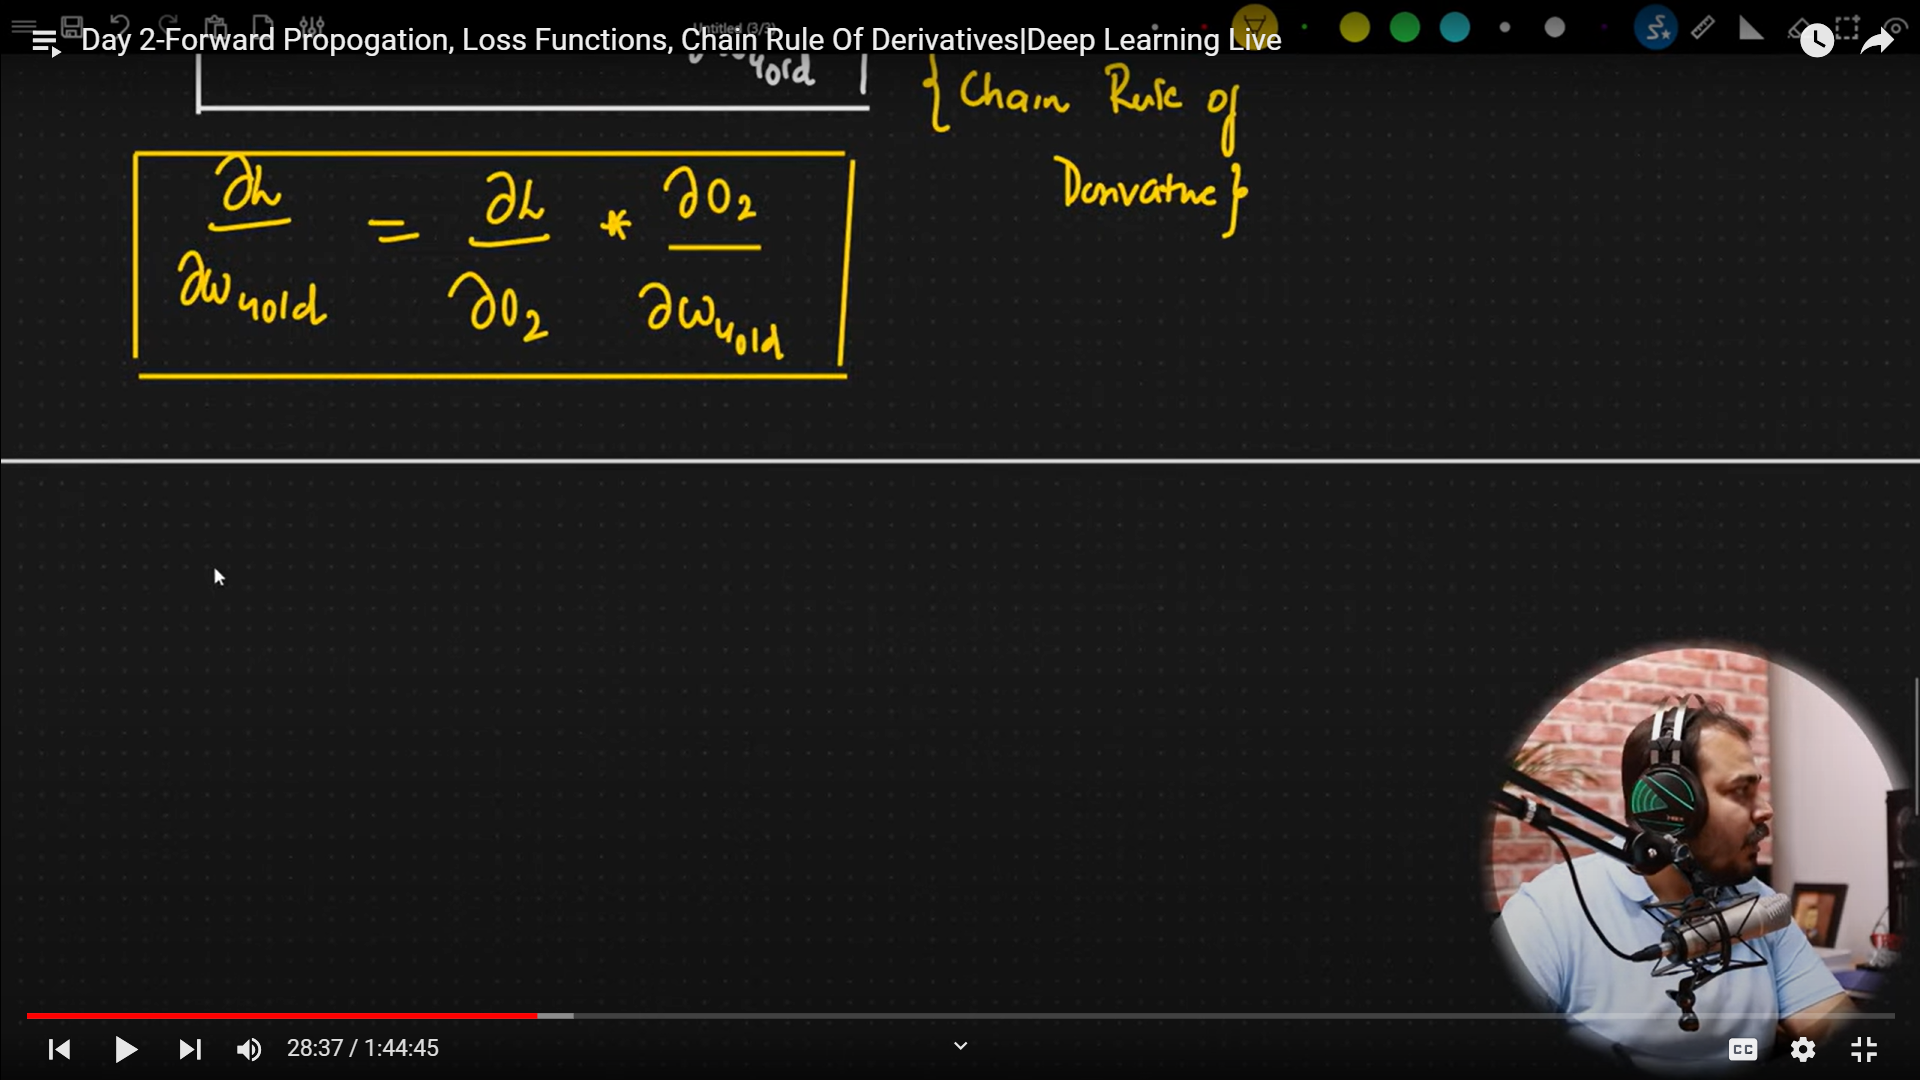 Untitled (3/3)
Day 2-Forward Propogation, Loss Functions, Chain Rule Of Derivatives|Deep Learning Live
4old
{Chain Rule of
Derivative}
∂L/∂w4old = ∂L/∂O2 * ∂O2/∂w4old
28:37 / 1:44:45
CC